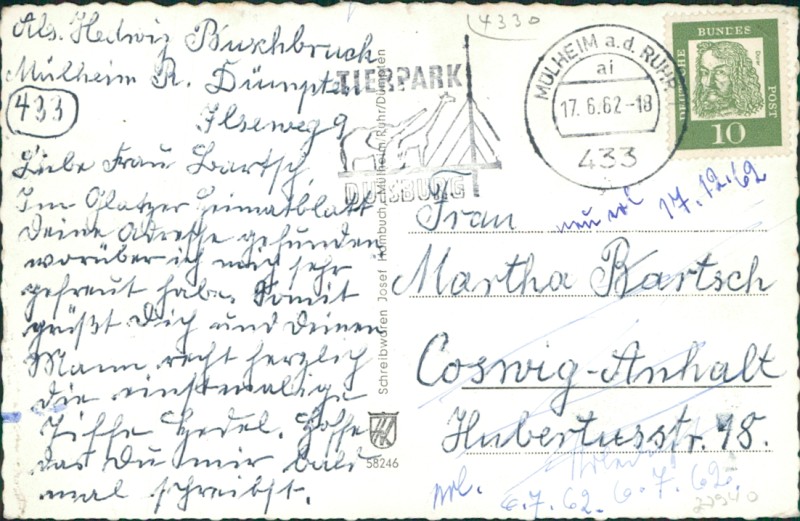 Abs. Hedwig Buschbruch
Mülheim R. Dümpten
433
Ilseweg 9
Liebe Frau Bartsch
Im Glatzer Heimatblatt
Deine Adresse gefunden
worüber ich mich sehr
gefreut habe. Somit
grüßt Dich und Deinen
Mann recht herzlich
die einstmalige
Hedel. Hoffe
das Du mir bald
mal schreibst.
4330
TIERPARK
DUISBURG
MÜLHEIM a.d. RUHR
ai
17.6.62-18
433
DEUTSCHE BUNDESPOST
Dürer
10
17.12.62
Frau
Martha Bartsch
Coswig-Anhalt
Hubertusstr. 18.
6.7.62. 6.7.62.
Schreibwaren Josef Hombuch, Mülheim/Ruhr/Dümpten
58246